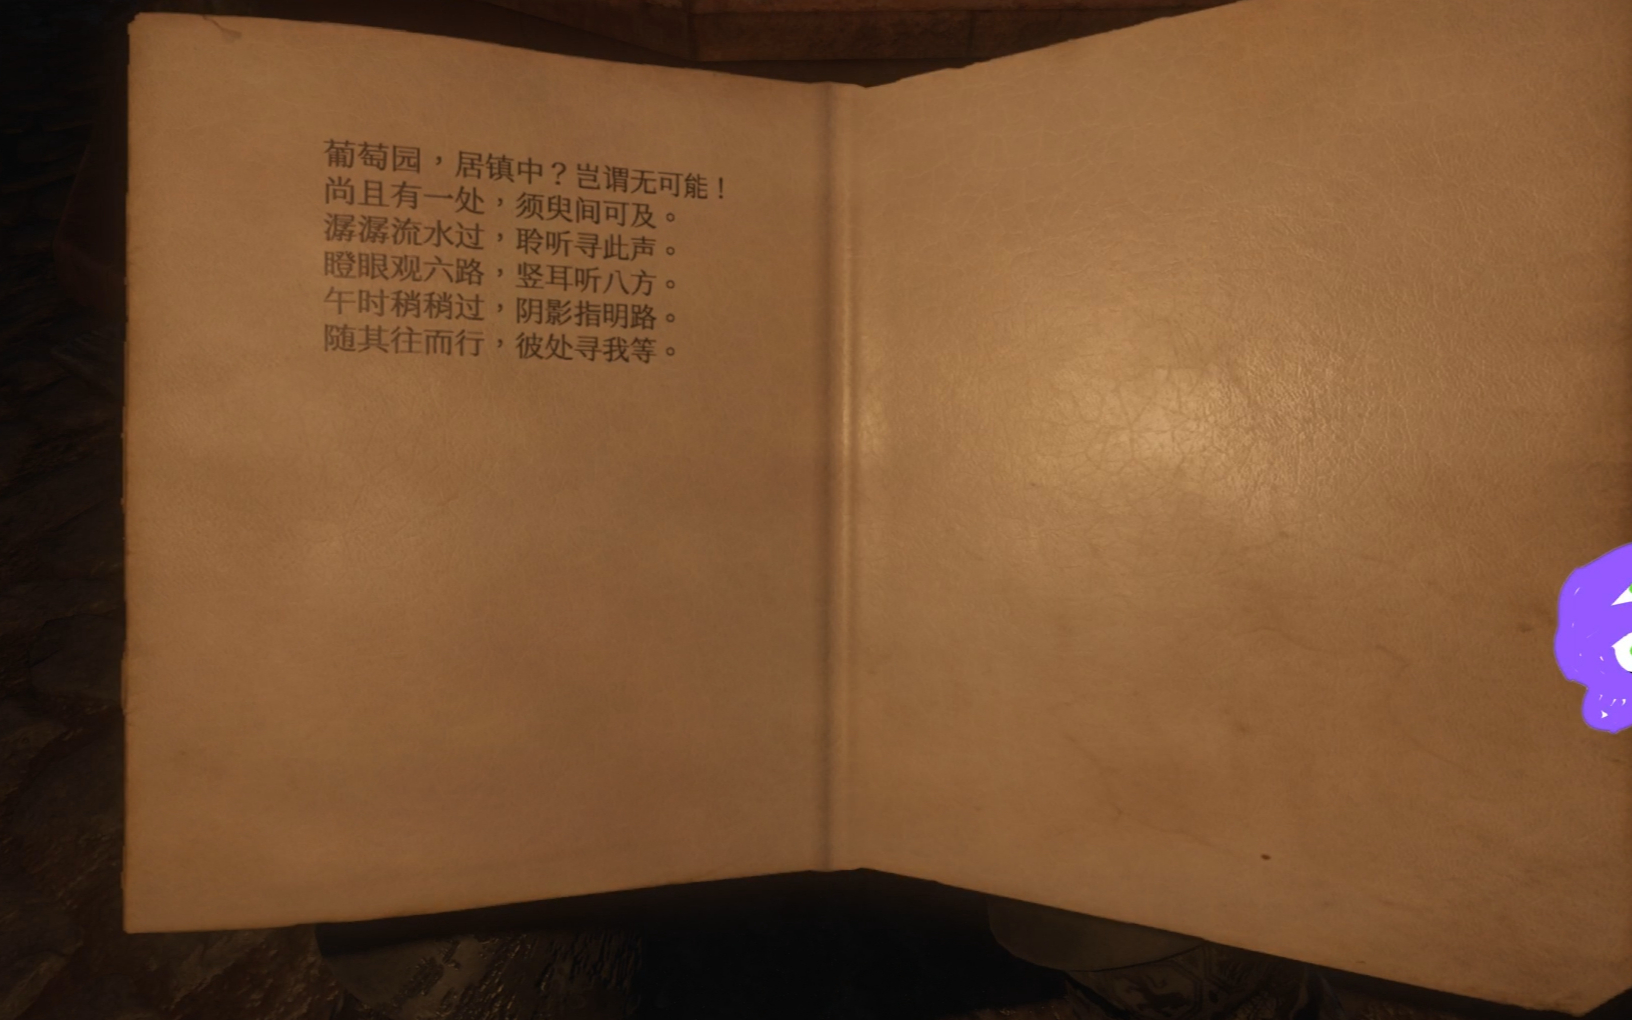 葡萄园，居镇中？岂谓无可能！
尚且有一处，须臾间可及。
潺潺流水过，聆听寻此声。
瞪眼观六路，竖耳听八方。
午时稍稍过，阴影指明路。
随其往而行，彼处寻我等。